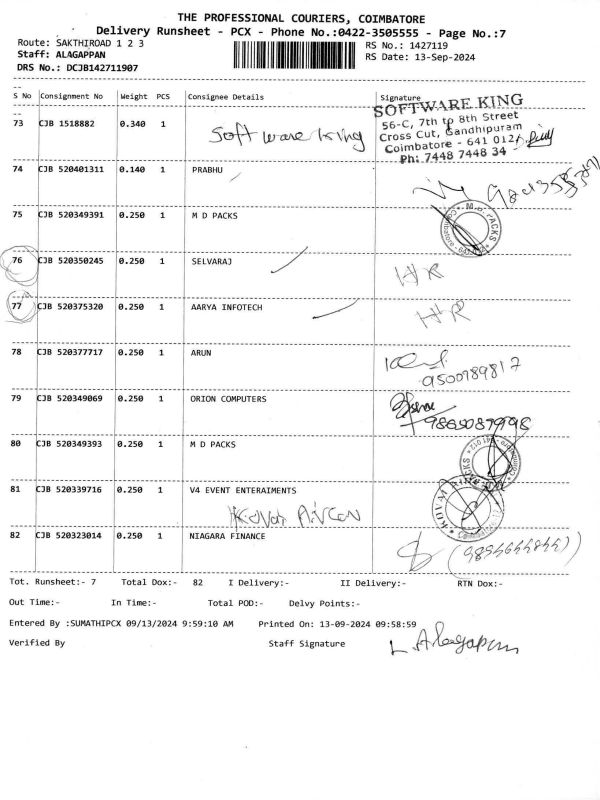 THE PROFESSIONAL COURIERS, COIMBATORE
Delivery Runsheet - PCX - Phone No.:0422-3505555 - Page No.:7
Route: SAKTHIROAD 1 2 3 RS No.: 1427119
Staff: ALAGAPPAN RS Date: 13-Sep-2024
DRS No.: DCJB142711907
S No Consignment No Weight PCS Consignee Details Signature
73 CJB 1518882 0.340 1 Software King
SOFTWARE KING
56-C, 7th to 8th Street
Cross Cut, Gandhipuram
Coimbatore - 641 012
Ph: 7448 7448 34
74 CJB 520401311 0.140 1 PRABHU
75 CJB 520349391 0.250 1 M D PACKS
76 CJB 520350245 0.250 1 SELVARAJ HR
77 CJB 520375320 0.250 1 AARYA INFOTECH HR
78 CJB 520377717 0.250 1 ARUN
9500789817
79 CJB 520349069 0.250 1 ORION COMPUTERS
9865087998
80 CJB 520349393 0.250 1 M D PACKS
81 CJB 520339716 0.250 1 V4 EVENT ENTERAIMENTS
82 CJB 520323014 0.250 1 NIAGARA FINANCE
Tot. Runsheet:- 7 Total Dox:- 82 I Delivery:- II Delivery:- RTN Dox:-
Out Time:- In Time:- Total POD:- Delvy Points:-
Entered By :SUMATHIPCX 09/13/2024 9:59:10 AM Printed On: 13-09-2024 09:58:59
Verified By Staff Signature L Alagappan